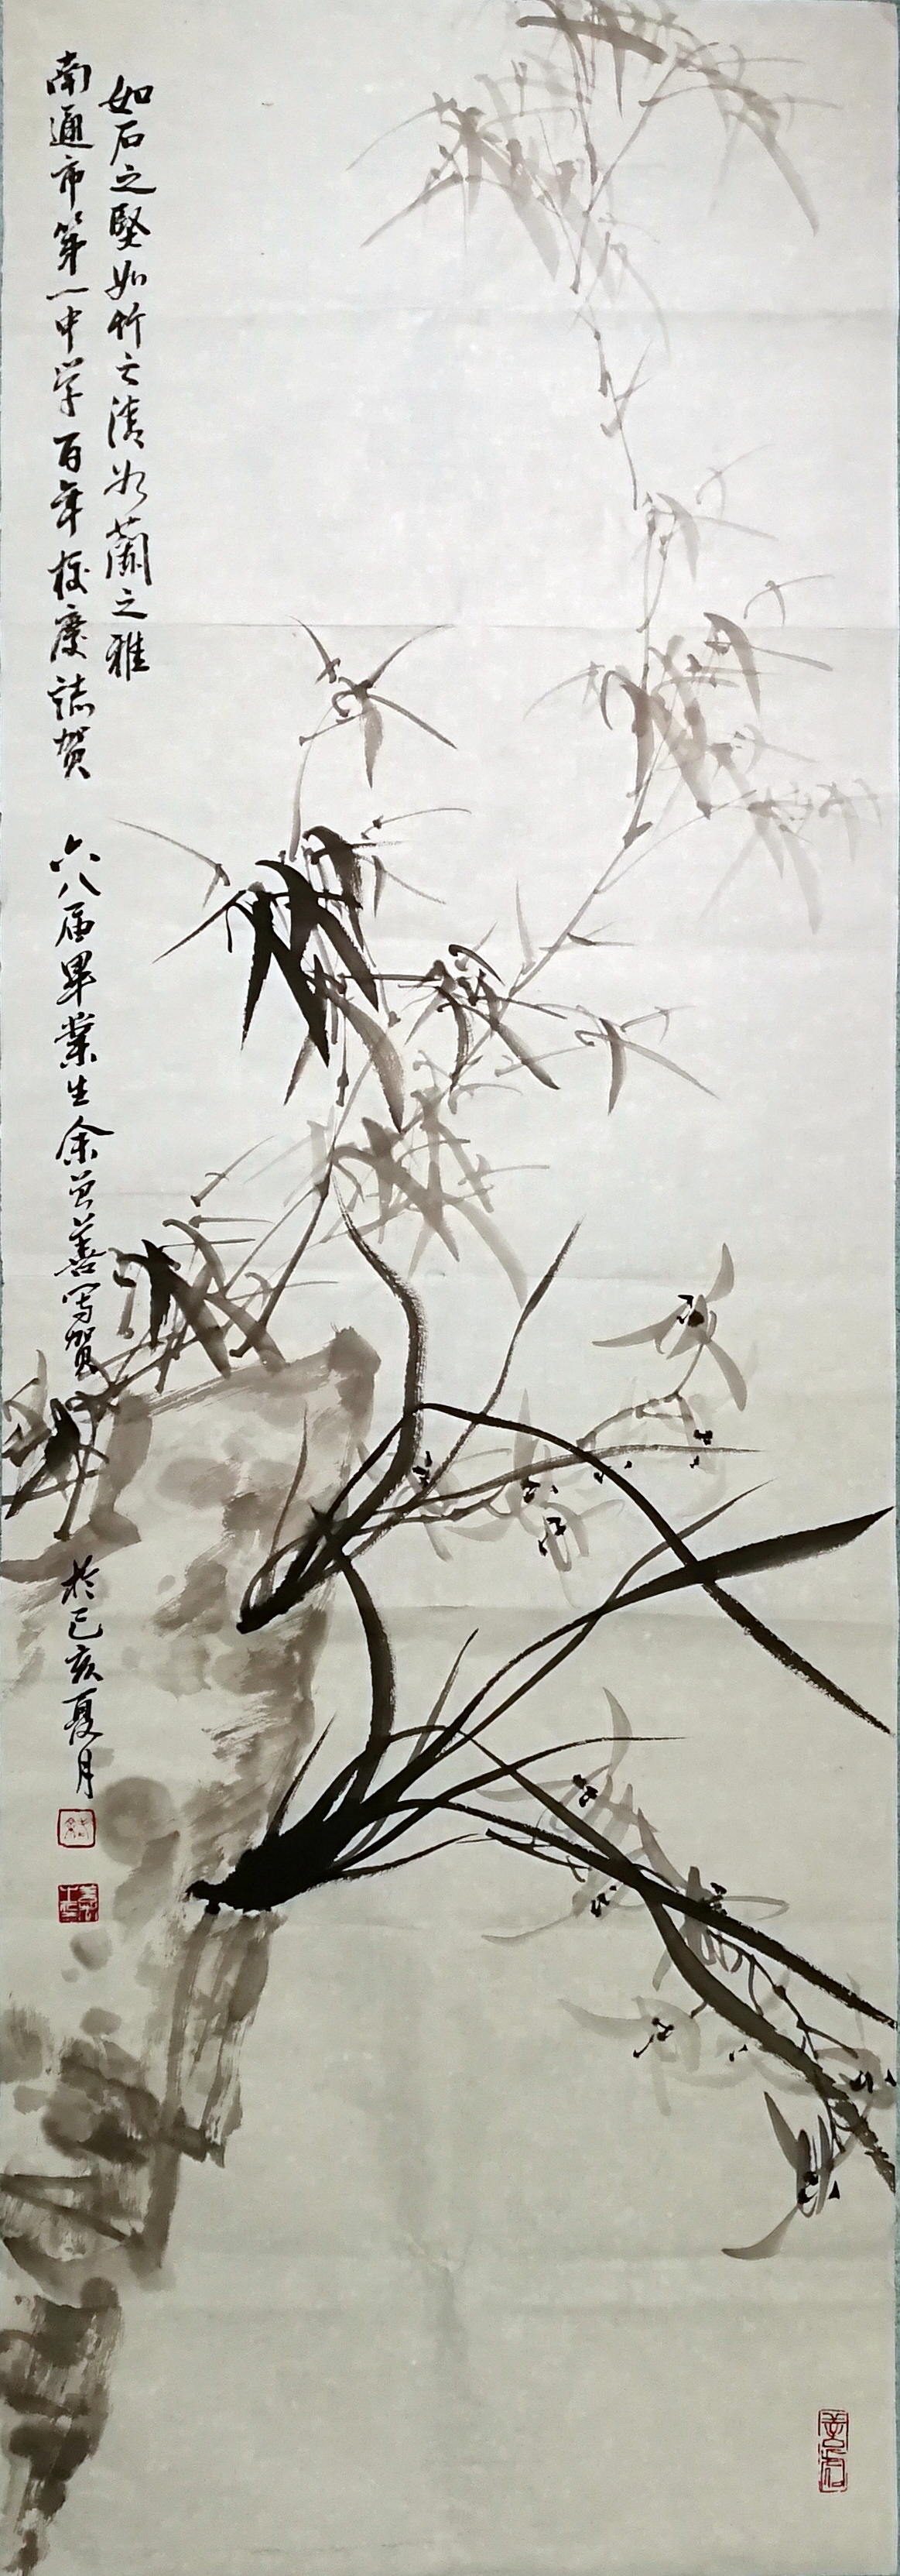 如石之堅如竹之清如蘭之雅
南通市第一中学百年校慶誌賀 六八届畢業生余曾善写贺 於己亥夏月